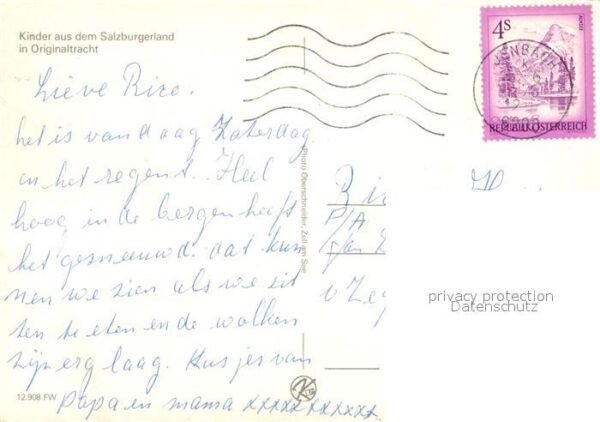 Kinder aus dem Salzburgerland
in Originaltracht
Lieve Rico.
het is vandaag Zaterdag
en het regent. Heel
hoog in de bergen heeft
het gesneeuwd. dat kun
nen we zien als we sit
ten te eten en de wolken
zijn erg laag. Kusjes van
Papa en mama xxxxxxxxxxx
12.908 FW
Photo Oberschneider, Zell am See
4S
ALMSEE
REPUBLIK ÖSTERREICH
P/A
privacy protection
Datenschutz